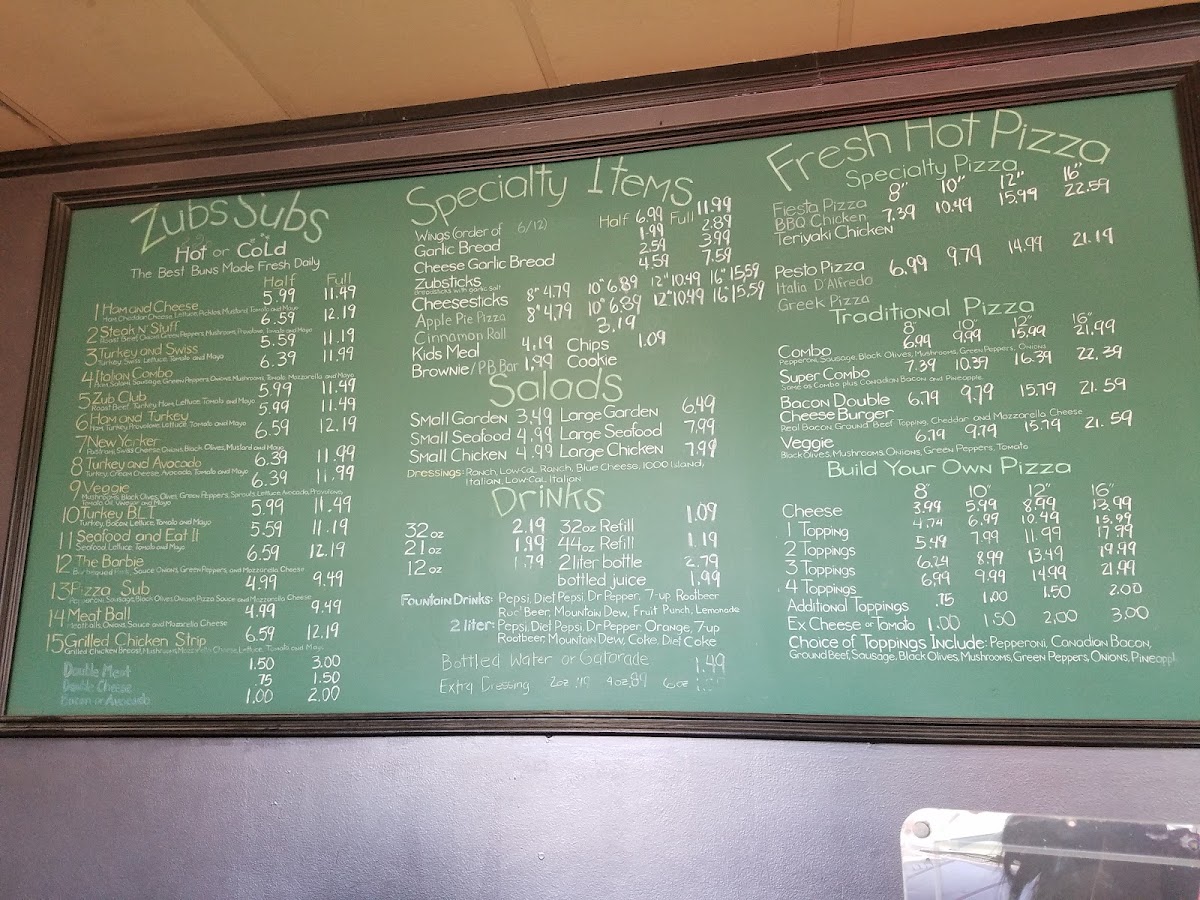 Zubs Subs
Hot or Cold
The Best Buns Made Fresh Daily
Half Full
1 Ham and Cheese 5.99 11.49
Ham, Cheddar Cheese, Lettuce, Pickles, Mustard, Tomato and Mayo
2 Steak N' Stuff 6.59 12.19
Roast Beef, Onions, Green Peppers, Mushrooms, Provolone, Tomato and Mayo
3 Turkey and Swiss 5.59 11.19
Turkey, Swiss, Lettuce, Tomato and Mayo
4 Italian Combo 6.39 11.99
Ham, Salami, Sausage, Green Peppers, Onions, Mushrooms, Tomato, Mozzarella, and Mayo
5 Zub Club 5.99 11.49
Roast Beef, Turkey, Ham, Lettuce, Tomato and Mayo
6 Ham and Turkey 5.99 11.49
Ham, Turkey, Provolone, Lettuce, Tomato and Mayo
7 New Yorker 6.59 12.19
Pastrami, Swiss Cheese, Onions, Black Olives, Mustard and Mayo
8 Turkey and Avocado 6.39 11.99
Turkey, Cream Cheese, Avocado, Tomato and Mayo
9 Veggie 6.39 11.99
Mushrooms, Black Olives, Olives, Green Peppers, Sprouts, Lettuce, Avocado, Provolone,
Tomato, Oil, Vinegar and Mayo
10 Turkey BLT 5.99 11.49
Turkey, Bacon, Lettuce, Tomato and Mayo
11 Seafood and Eat It 5.59 11.19
Seafood, Lettuce, Tomato and Mayo
12 The Barbie 6.59 12.19
Sauce, Onions, Green Peppers, and Mozzarella Cheese
13 Pizza Sub 4.99 9.49
Pepperoni, Sausage, Black Olives, Onions, Pizza Sauce and Mozzarella Cheese
14 Meat Ball 4.99 9.49
Meatballs, Onions, Sauce and Mozzarella Cheese
15 Grilled Chicken Strip 6.59 12.19
Grilled Chicken Breast, Mushrooms, Mozzarella Cheese, Lettuce, Tomato and Mayo
Double Meat 1.50 3.00
Double Cheese .75 1.50
Bacon or Avocado 1.00 2.00
Specialty Items
Wings (order of 6/12) Half 6.99 Full 11.99
Garlic Bread 1.99 2.89
Cheese Garlic Bread 2.59 3.99
Zubsticks 4.59 7.59
Breadsticks with garlic salt
Cheesesticks 8" 4.79 10" 6.89 12" 10.49 16" 15.59
Apple Pie Pizza 8" 4.79 10" 6.89 12" 10.49 16" 15.59
Cinnamon Roll 3.19
Kids Meal 4.19 Chips 1.09
Brownie/PB Bar 1.99 Cookie
Salads
Small Garden 3.49 Large Garden 6.49
Small Seafood 4.99 Large Seafood 7.99
Small Chicken 4.99 Large Chicken 7.99
Dressings: Ranch, Low-Cal Ranch, Blue Cheese, 1000 Island,
Italian, Low-Cal Italian
Drinks
32 oz 2.19 32oz Refill 1.09
21 oz 1.99 44oz Refill 1.19
12 oz 1.79 2 liter bottle 2.79
bottled juice 1.99
Fountain Drinks: Pepsi, Diet Pepsi, Dr Pepper, 7-up Rootbeer
Mountain Dew, Fruit Punch, Lemonade
2 liter: Pepsi, Diet Pepsi, Dr Pepper, Orange, 7-up
Rootbeer, Mountain Dew, Coke, Diet Coke
Bottled Water or Gatorade 1.49
Extra Dressing 2oz .49 4oz .84 6oz
Fresh Hot Pizza
Specialty Pizza
8" 10" 12" 16"
Fiesta Pizza
BBQ Chicken 7.39 10.49 15.99 22.59
Teriyaki Chicken
Pesto Pizza 6.99 9.79 14.99 21.19
Italia D'Alfredo
Greek Pizza
Traditional Pizza
8" 10" 12" 16"
Combo 6.99 9.99 15.99 21.99
Pepperoni, Sausage, Black Olives, Mushrooms, Green Peppers, Onions
Super Combo 7.39 10.39 16.39 22.39
Same as Combo plus Canadian Bacon and Pineapple
Bacon Double 6.79 9.79 15.79 21.59
Cheese Burger
Real Bacon, Ground Beef Topping, Cheddar and Mozzarella Cheese
Veggie 6.79 9.79 15.79 21.59
Black Olives, Mushrooms, Onions, Green Peppers, Tomato
Build Your Own Pizza
8" 10" 12" 16"
Cheese 3.99 5.99 8.99 13.99
1 Topping 4.74 6.99 10.49 15.99
2 Toppings 5.49 7.99 11.99 17.99
3 Toppings 6.24 8.99 13.49 19.99
4 Toppings 6.99 9.99 14.99 21.99
Additional Toppings .75 1.00 1.50 2.00
Ex Cheese or Tomato 1.00 1.50 2.00 3.00
Choice of Toppings Include: Pepperoni, Canadian Bacon,
Ground Beef, Sausage, Black Olives, Mushrooms, Green Peppers, Onions, Pineappl